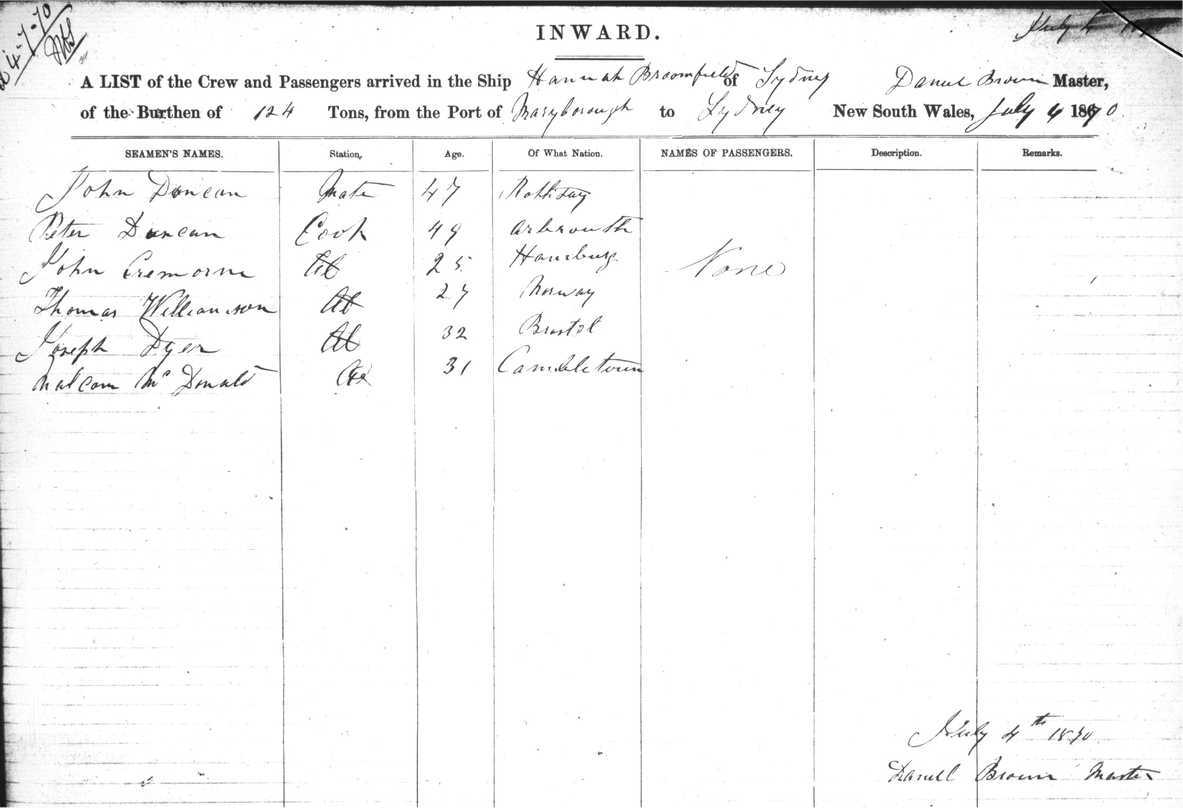 4-7-70
INWARD.
July 4
A LIST of the Crew and Passengers arrived in the Ship Hannah Broomfield of Sydney Daniel Brown Master,
of the Burthen of 124 Tons, from the Port of Maryborough to Sydney New South Wales, July 4 1870
SEAMEN'S NAMES. Station, Age. Of What Nation. NAMES OF PASSENGERS. Description. Remarks.
John Duncan Mate 47 Rothsay
Peter Duncan Cook 49 Arbrouth
John Cremorne AB 25 Hamburg None
Thomas Williamson AB 27 Norway
Joseph Dyer AB 32 Bristol
Malcom Mc Donald 31 Cambletown
July 4th 1870
Daniell Brown Master